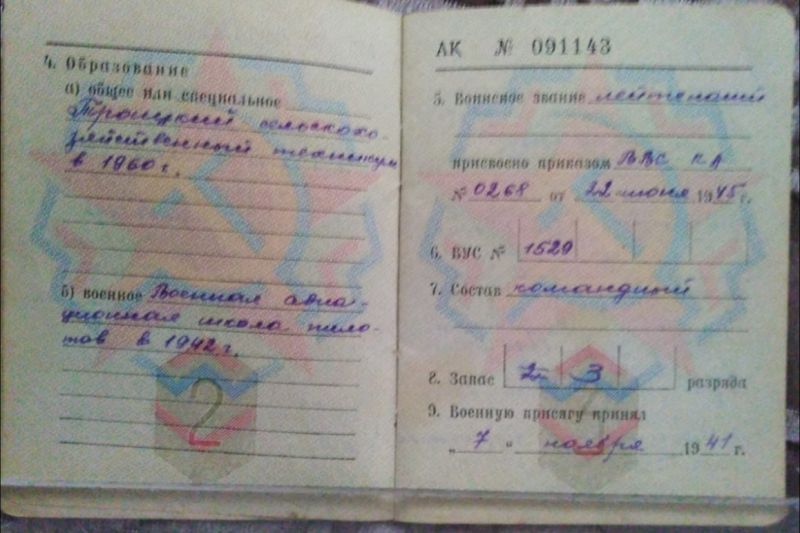 4. Образование
а) общее или специальное
Троицкий сельскохо-
зяйственный техникум
в 1960 г.
б) военное Военная авиа-
ционная школа пило-
тов в 1942 г.
2
АК № 091143
5. Воинское звание лейтенант
присвоено приказом ВВС КА
№ 0268 от 22 июня 1945 г.
6. ВУС № 1529
7. Состав командный
8. Запас 2 3 разряда
9. Военную присягу принял
„ 7 " ноября 1941 г.
3